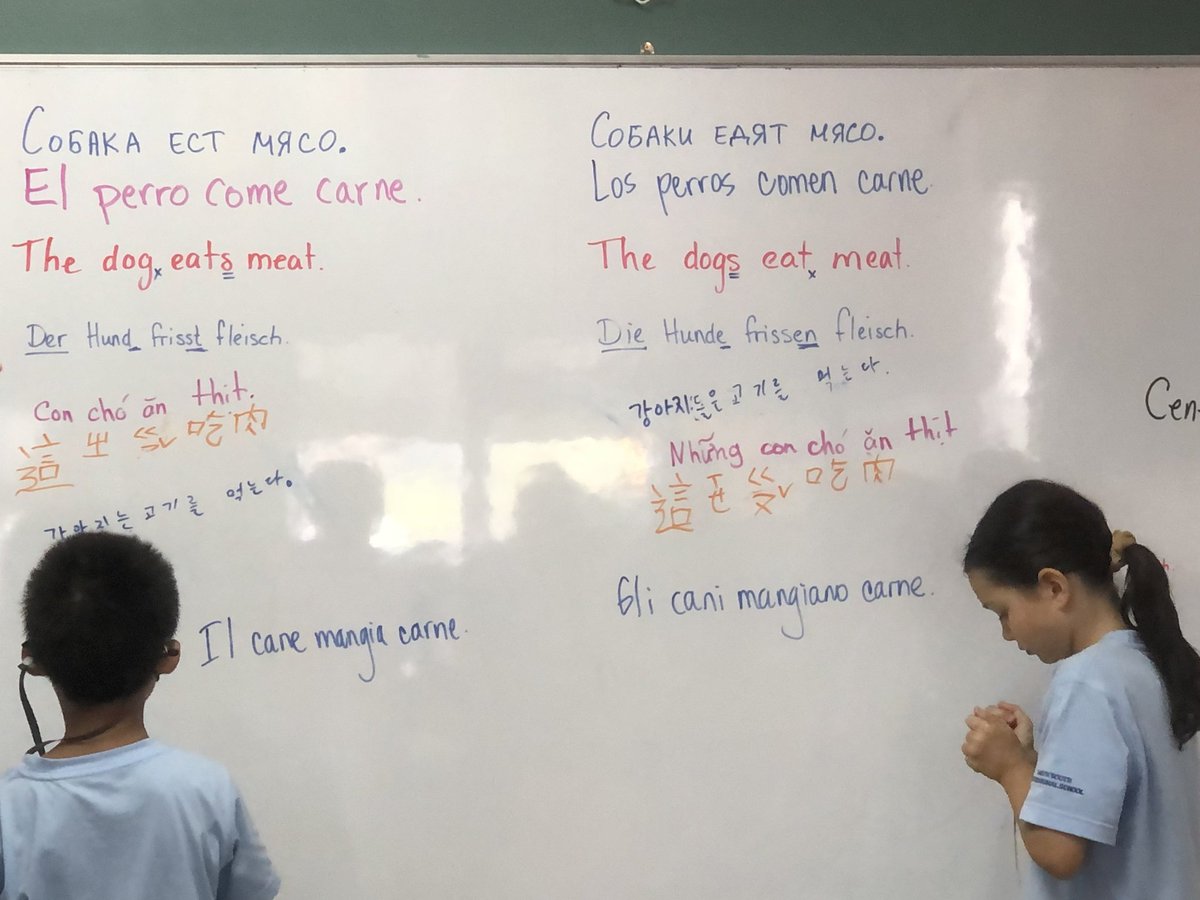 Собака ест мясо.
El perro come carne.
The dog eats meat.
Der Hund frisst fleisch.
Con chó ăn thịt.
這 吃肉
강아지는 고기를 먹는다.
Il cane mangia carne.
Собаки едят мясо.
Los perros comen carne.
The dogs eat meat.
Die Hunde frissen fleisch.
강아지들은 고기를 먹는다.
Những con chó ăn thịt
這 吃肉
Gli cani mangiano carne.
Cen